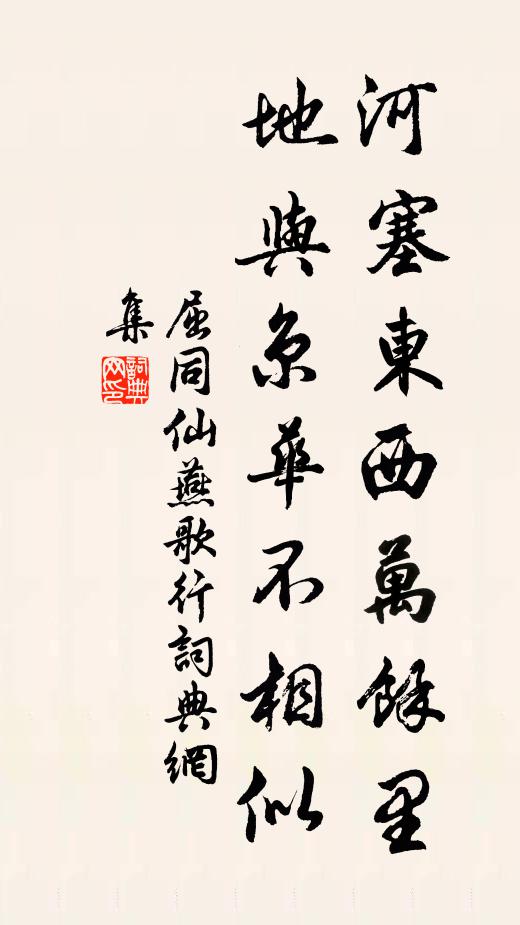 河塞東西萬餘里
地與京華不相似
屈同仙燕歌行詞典網
集
詞典網印